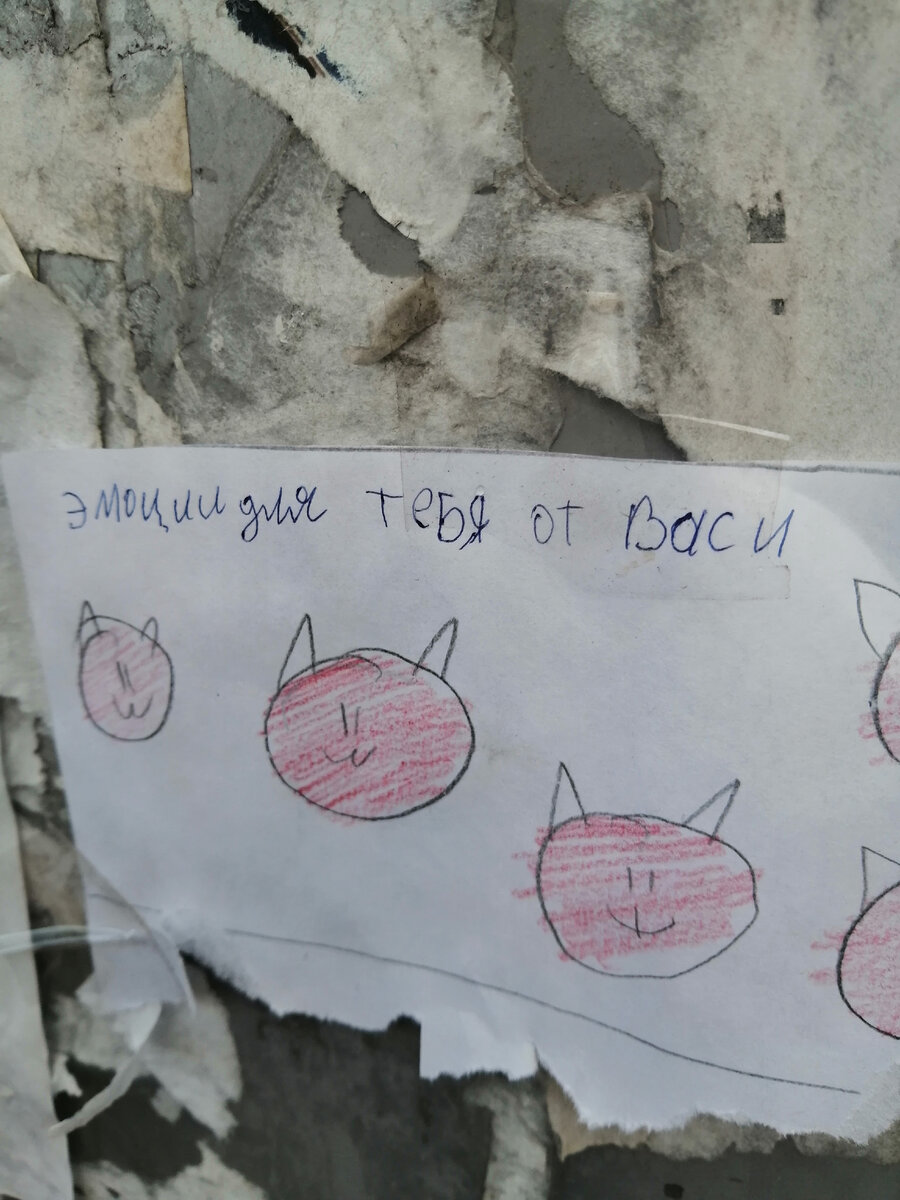 эмоции для тебя от Васи